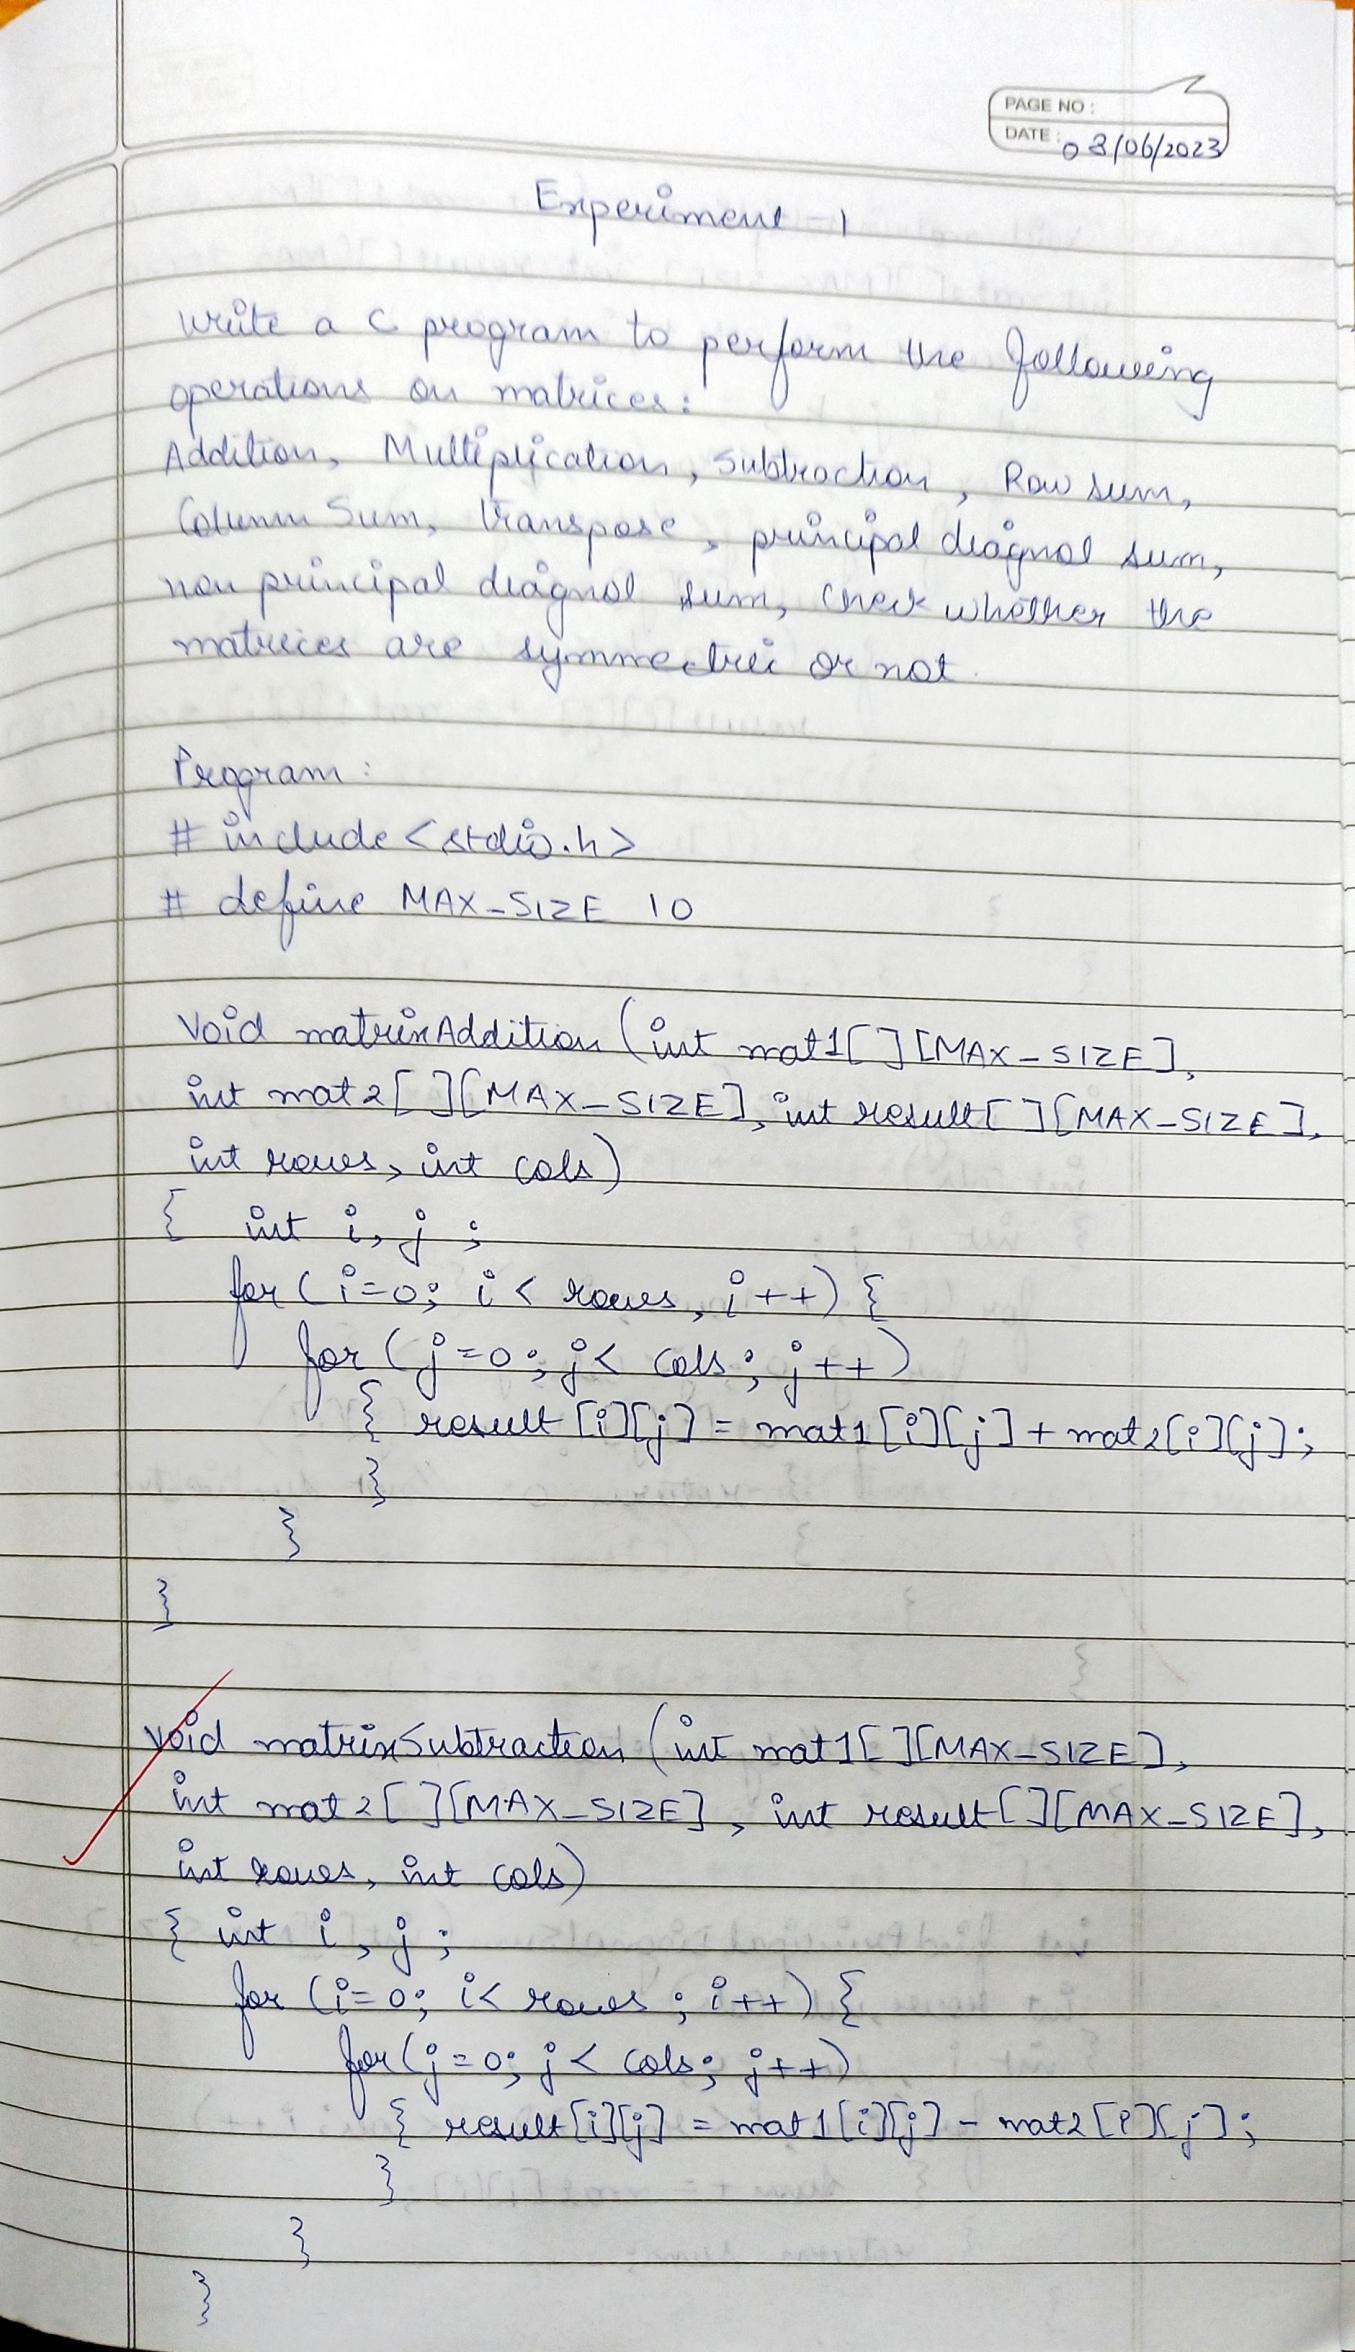 PAGE NO :
DATE : 03/06/2023
Experiment - 1
Write a C program to perform the following
operations on matrices:
Addition, Multiplication, Subtraction, Row sum,
Column Sum, transpose, principal diagnol sum,
non principal diagnol sum, check whether the
matrices are symmectric or not.
Program :
# include <stdio.h>
# define MAX_SIZE 10
void matrixAddition (int mat1[][MAX_SIZE],
int mat2[][MAX_SIZE], int result[][MAX_SIZE],
int rows, int cols)
{ int i, j ;
for (i=0; i< rows, i++) {
for (j=0; j< cols; j++)
{ result [i][j] = mat1[i][j] + mat2[i][j];
}
}
}
void matrixSubtraction (int mat1[][MAX_SIZE],
int mat2[][MAX_SIZE], int result[][MAX_SIZE],
int rows, int cols)
{ int i, j ;
for (i=0; i< rows ; i++) {
for (j=0; j< cols; j++)
{ result[i][j] = mat1[i][j] - mat2[i][j];
}
}
}